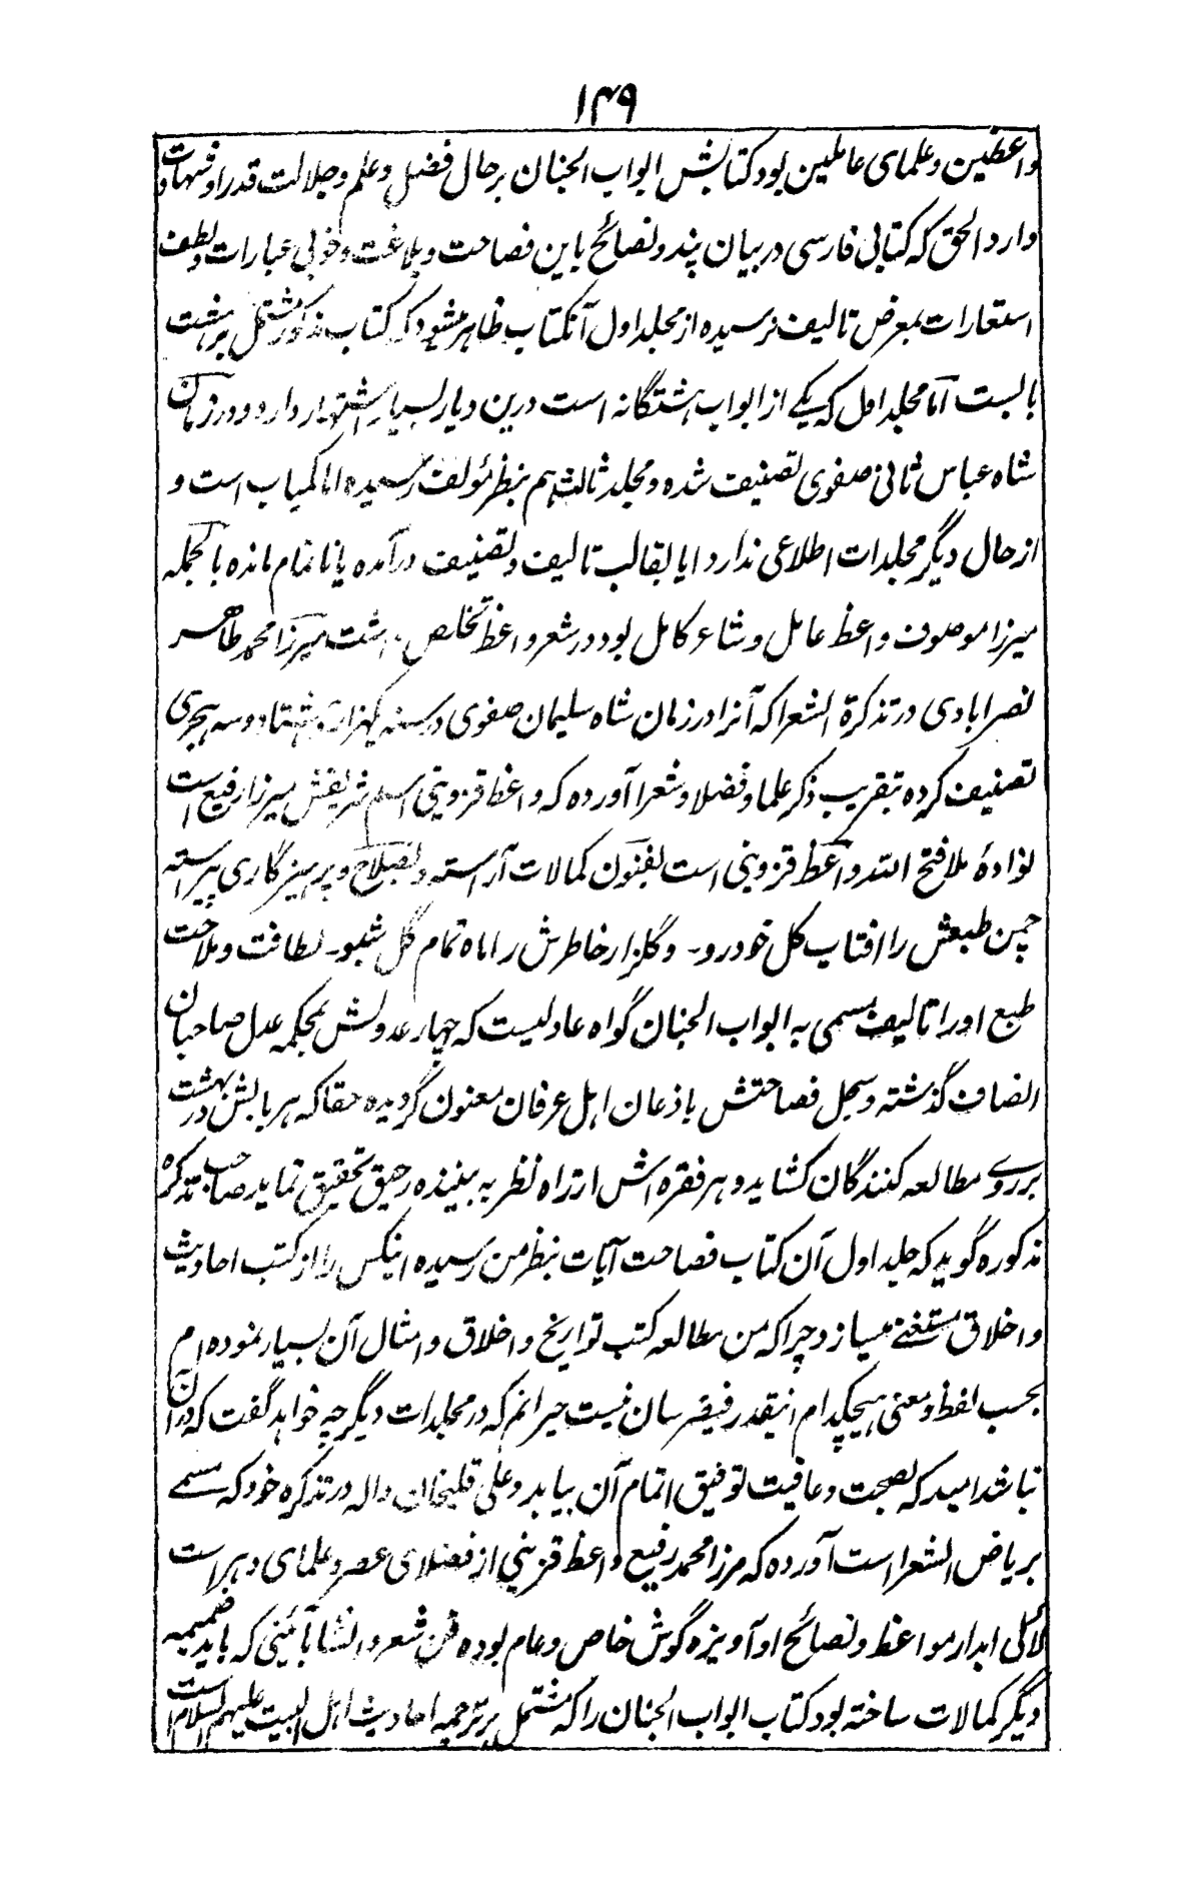 ۱۴۹
واعظین و علمای عاملین بود کتابش ابواب الجنان برحال فضل و علم و جلالت قدر او شهادت
دارد الحق که کتابی فارسی در بیان پند و نصائح باین فصاحت و بلاغت و خوبی عبارات و لطف
استعارات بمعرض تالیف نرسیده از مجلد اول آنکتاب ظاهر میشود که کتاب مذکور مشتمل بر هشت
بابست اما مجلد اول که یکے از ابواب هشتگانه است درین دیار بسیار اشتهار دارد و در زمان
شاه عباس ثانی صفوی تصنیف شده و مجلد ثالث هم بنظر مؤلف رسیده اما کمیاب است و
از حال دیگر مجلدات اطلاعی ندارد ایا بقالب تالیف و تصنیف درآمده یا ناتمام مانده بالجمله
میرزا موصوف واعظ عامل و شاعر کامل بود در شعر واعظ تخلص داشت میرزا محمد طاهر
نصرابادی در تذکرة الشعرا که آنرا در زمان شاه سلیمان صفوی در سنه یکهزار و هشتاد و سه هجری
تصنیف کرده بتقریب ذکر علما و فضلا و شعرا آورده که واعظ قزوینی اسم شریفش میرزا رفیع است
نوادهٔ ملا فتح الله واعظ قزوینی است بفنون کمالات آراسته و بصلاح و پرهیزگاری پیراسته
چمن طبعش را افتاب گل خودرو۔ و گلزار خاطرش را ماه تمام گل شبو۔ لطافت و ملاحت
طبع اورا تالیف مسمی به ابواب الجنان گواه عادلیست که چهار عدولش بمحکمه عدل صاحبان
انصاف گذشته و سجل فصاحتش باذعان اهل عرفان معنون گردیده حقا که هر بابش در بهشت
بروے مطالعه کنندگان کشاید و هر فقره اش از راه نظر به بیننده رحیق تحقیق نماید صاحب تذکره
مذکوره گوید که جلد اول آن کتاب فصاحت آیات بنظر من رسیده اینکس را از کتب احادیث
و اخلاق مستغنے میسازد چراکه من مطالعه کتب تواریخ و اخلاق و امثال آن بسیار نموده ام
بحسب لفظ و معنی هیچکدام اینقدر فیض رسان نیست حیرانم که در مجلدات دیگر چه خواهد گفت که دران
نباشد امید که بصحت و عافیت توفیق اتمام آن بیابد و علی قلیخان داله در تذکره خود که مسمے
بریاض الشعرا است آورده که مرزا محمد رفیع واعظ قزوینی از فضلای عصر و علمای دهر است
لآلی ابدار مواعظ و نصائح او آویزه گوش خاص و عام بوده فن شعر و انشا بآئینی که باید ضمیمه
دیگر کمالات ساخته بود کتاب ابواب الجنان را که مشتمل بر ترجمه احادیث اهل البیت علیهم السلام است